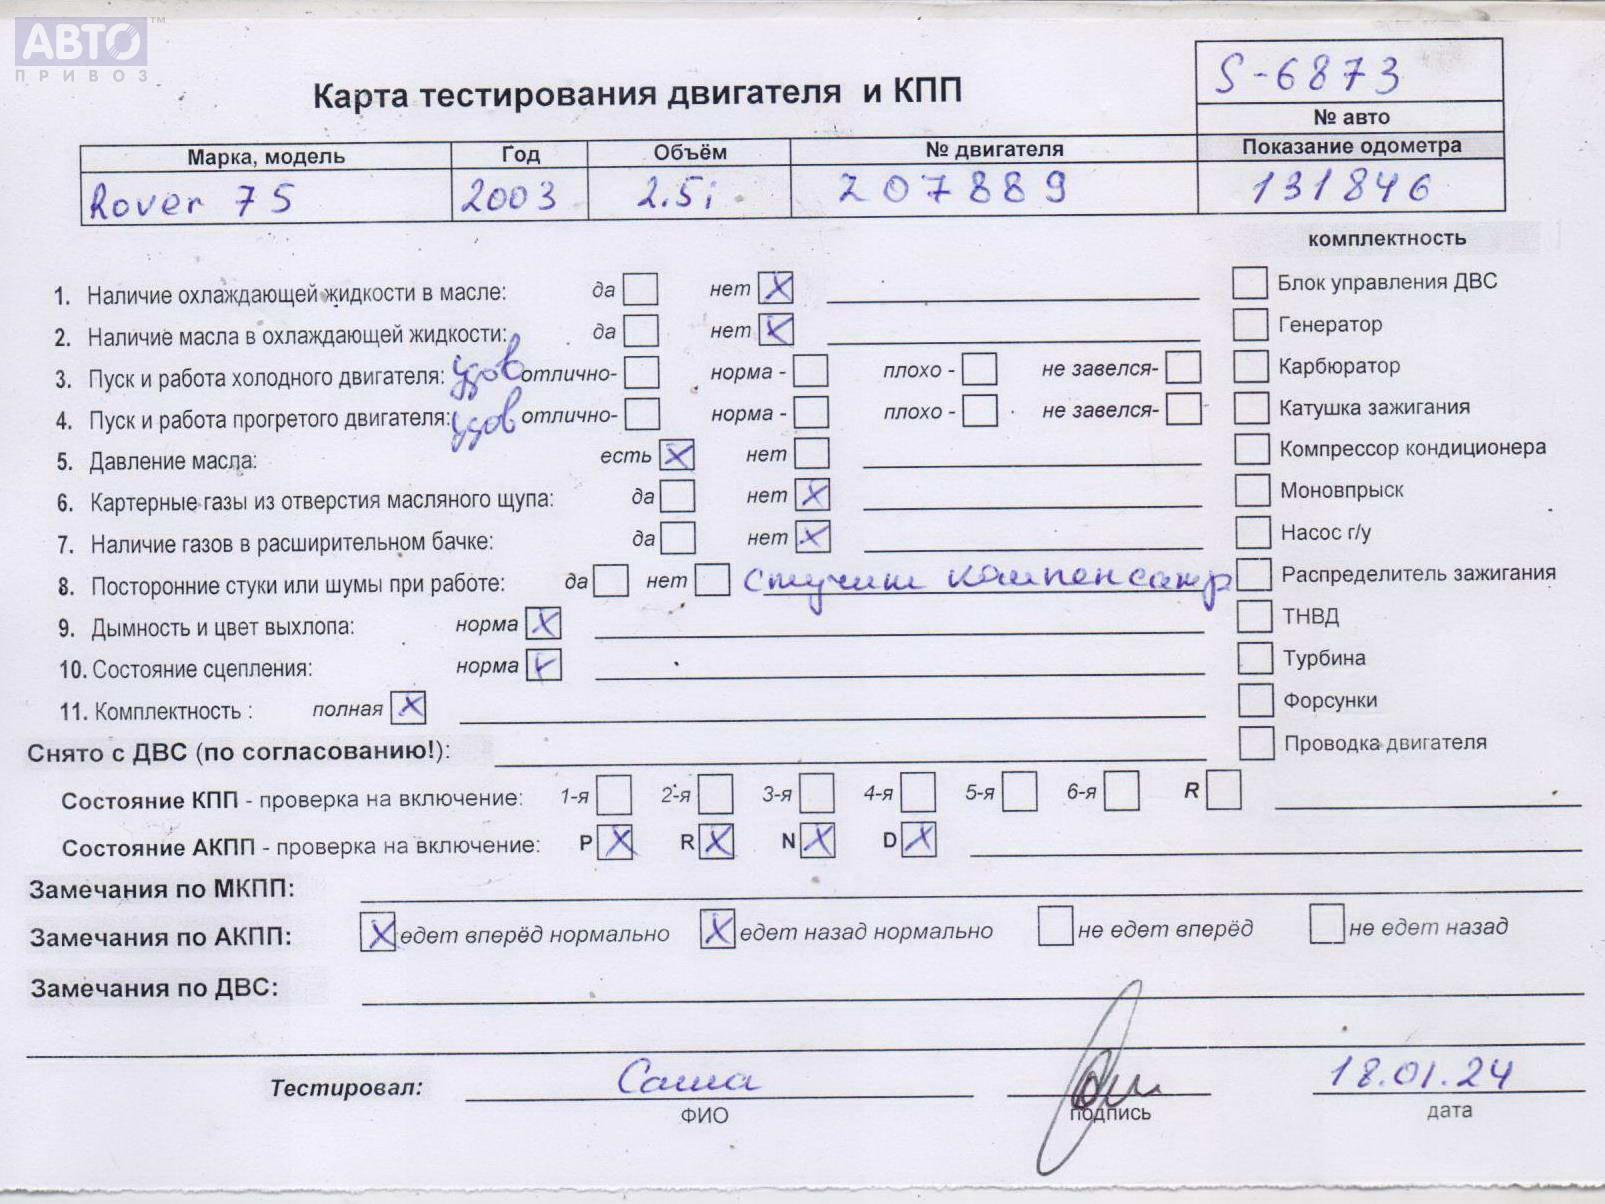 АВТО™
ПРИВОЗ
S-6873
Карта тестирования двигателя и КПП
№ авто
Марка, модель Год Объём № двигателя Показание одометра
Rover 75 2003 2.5i 207889 131846
комплектность
1. Наличие охлаждающей жидкости в масле: да нет X Блок управления ДВС
2. Наличие масла в охлаждающей жидкости: да нет X Генератор
3. Пуск и работа холодного двигателя: удов отлично- норма - плохо - не завелся- Карбюратор
4. Пуск и работа прогретого двигателя: удов отлично- норма - плохо - не завелся- Катушка зажигания
5. Давление масла: есть X нет Компрессор кондиционера
6. Картерные газы из отверстия масляного щупа: да нет X Моновпрыск
7. Наличие газов в расширительном бачке: да нет X Насос г/у
8. Посторонние стуки или шумы при работе: да нет стучит компенсатр Распределитель зажигания
9. Дымность и цвет выхлопа: норма X ТНВД
10. Состояние сцепления: норма X Турбина
11. Комплектность : полная X Форсунки
Снято с ДВС (по согласованию!): Проводка двигателя
Состояние КПП - проверка на включение: 1-я 2-я 3-я 4-я 5-я 6-я R
Состояние АКПП - проверка на включение: P X R X N X D X
Замечания по МКПП:
Замечания по АКПП: X едет вперёд нормально X едет назад нормально не едет вперёд не едет назад
Замечания по ДВС:
Тестировал: Саша 18.01.24
ФИО подпись дата